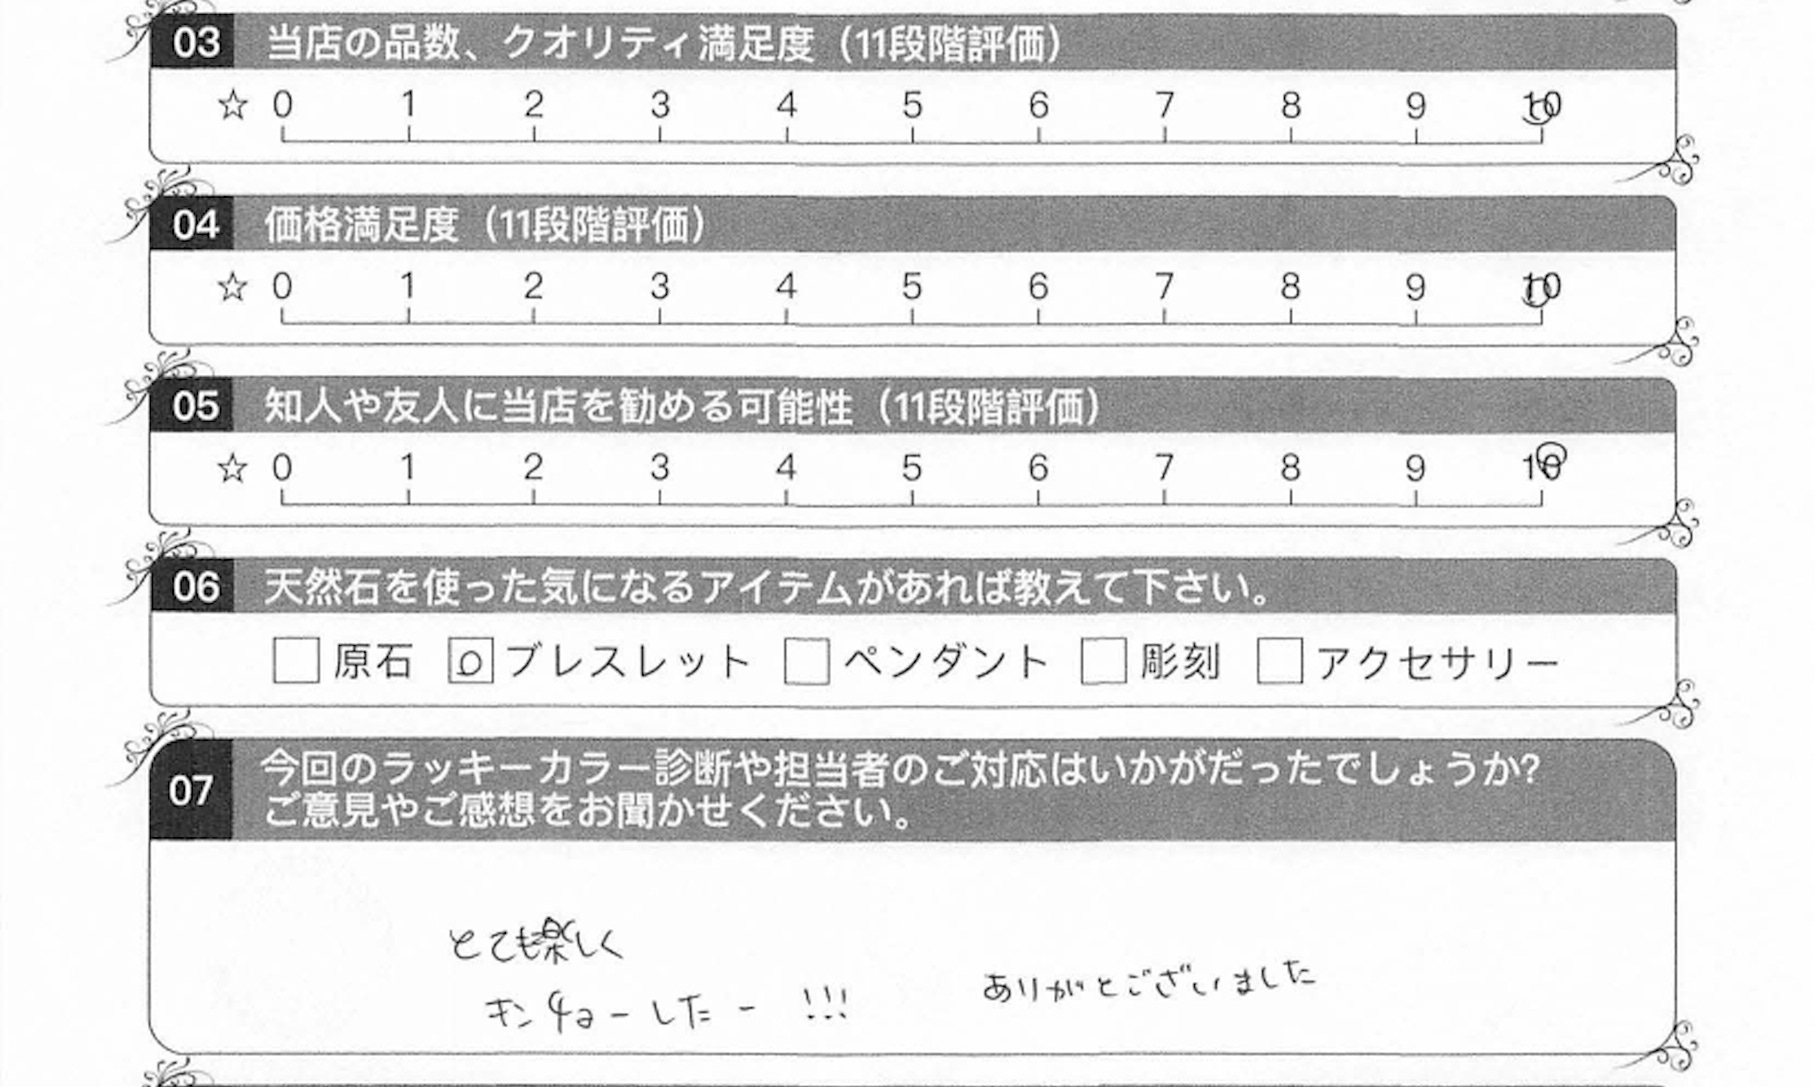 03 当店の品数、クオリティ満足度（11段階評価）
☆ 0 1 2 3 4 5 6 7 8 9 10
04 価格満足度（11段階評価）
☆ 0 1 2 3 4 5 6 7 8 9 10
05 知人や友人に当店を勧める可能性（11段階評価）
☆ 0 1 2 3 4 5 6 7 8 9 10
06 天然石を使った気になるアイテムがあれば教えて下さい。
原石 ブレスレット ペンダント 彫刻 アクセサリー
07 今回のラッキーカラー診断や担当者のご対応はいかがだったでしょうか?
ご意見やご感想をお聞かせください。
とても楽しく
キンチョーしたー !!!
ありがとございました